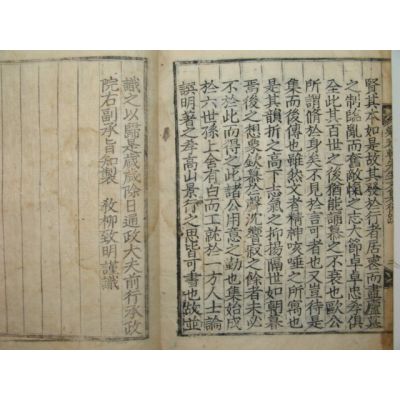 賢其本如是故其發於行者居喪而盡廬墓
之制臨亂而奮敵愾之志大節卓卓忠孝俱
全此其百世之後猶能誦慕之不衰也歐公
所謂脩於身矣不見於言可者也又豈待是
集而後傳也雖然文者精神咳唾之所寓也
是其韻折之高下志氣之抑揚隔世如朝暮
焉後之想要欽慕於聲沈響寂之餘者未必
不於此而得之此諸公用意之勤也集始成
於六世孫上舍有白而工就於一方人士論
譔明著之孝高山景行之思皆可書也故並
識之以歸是歲歲除日通政大夫前行承政
院右副承旨知製 敎柳致明謹識